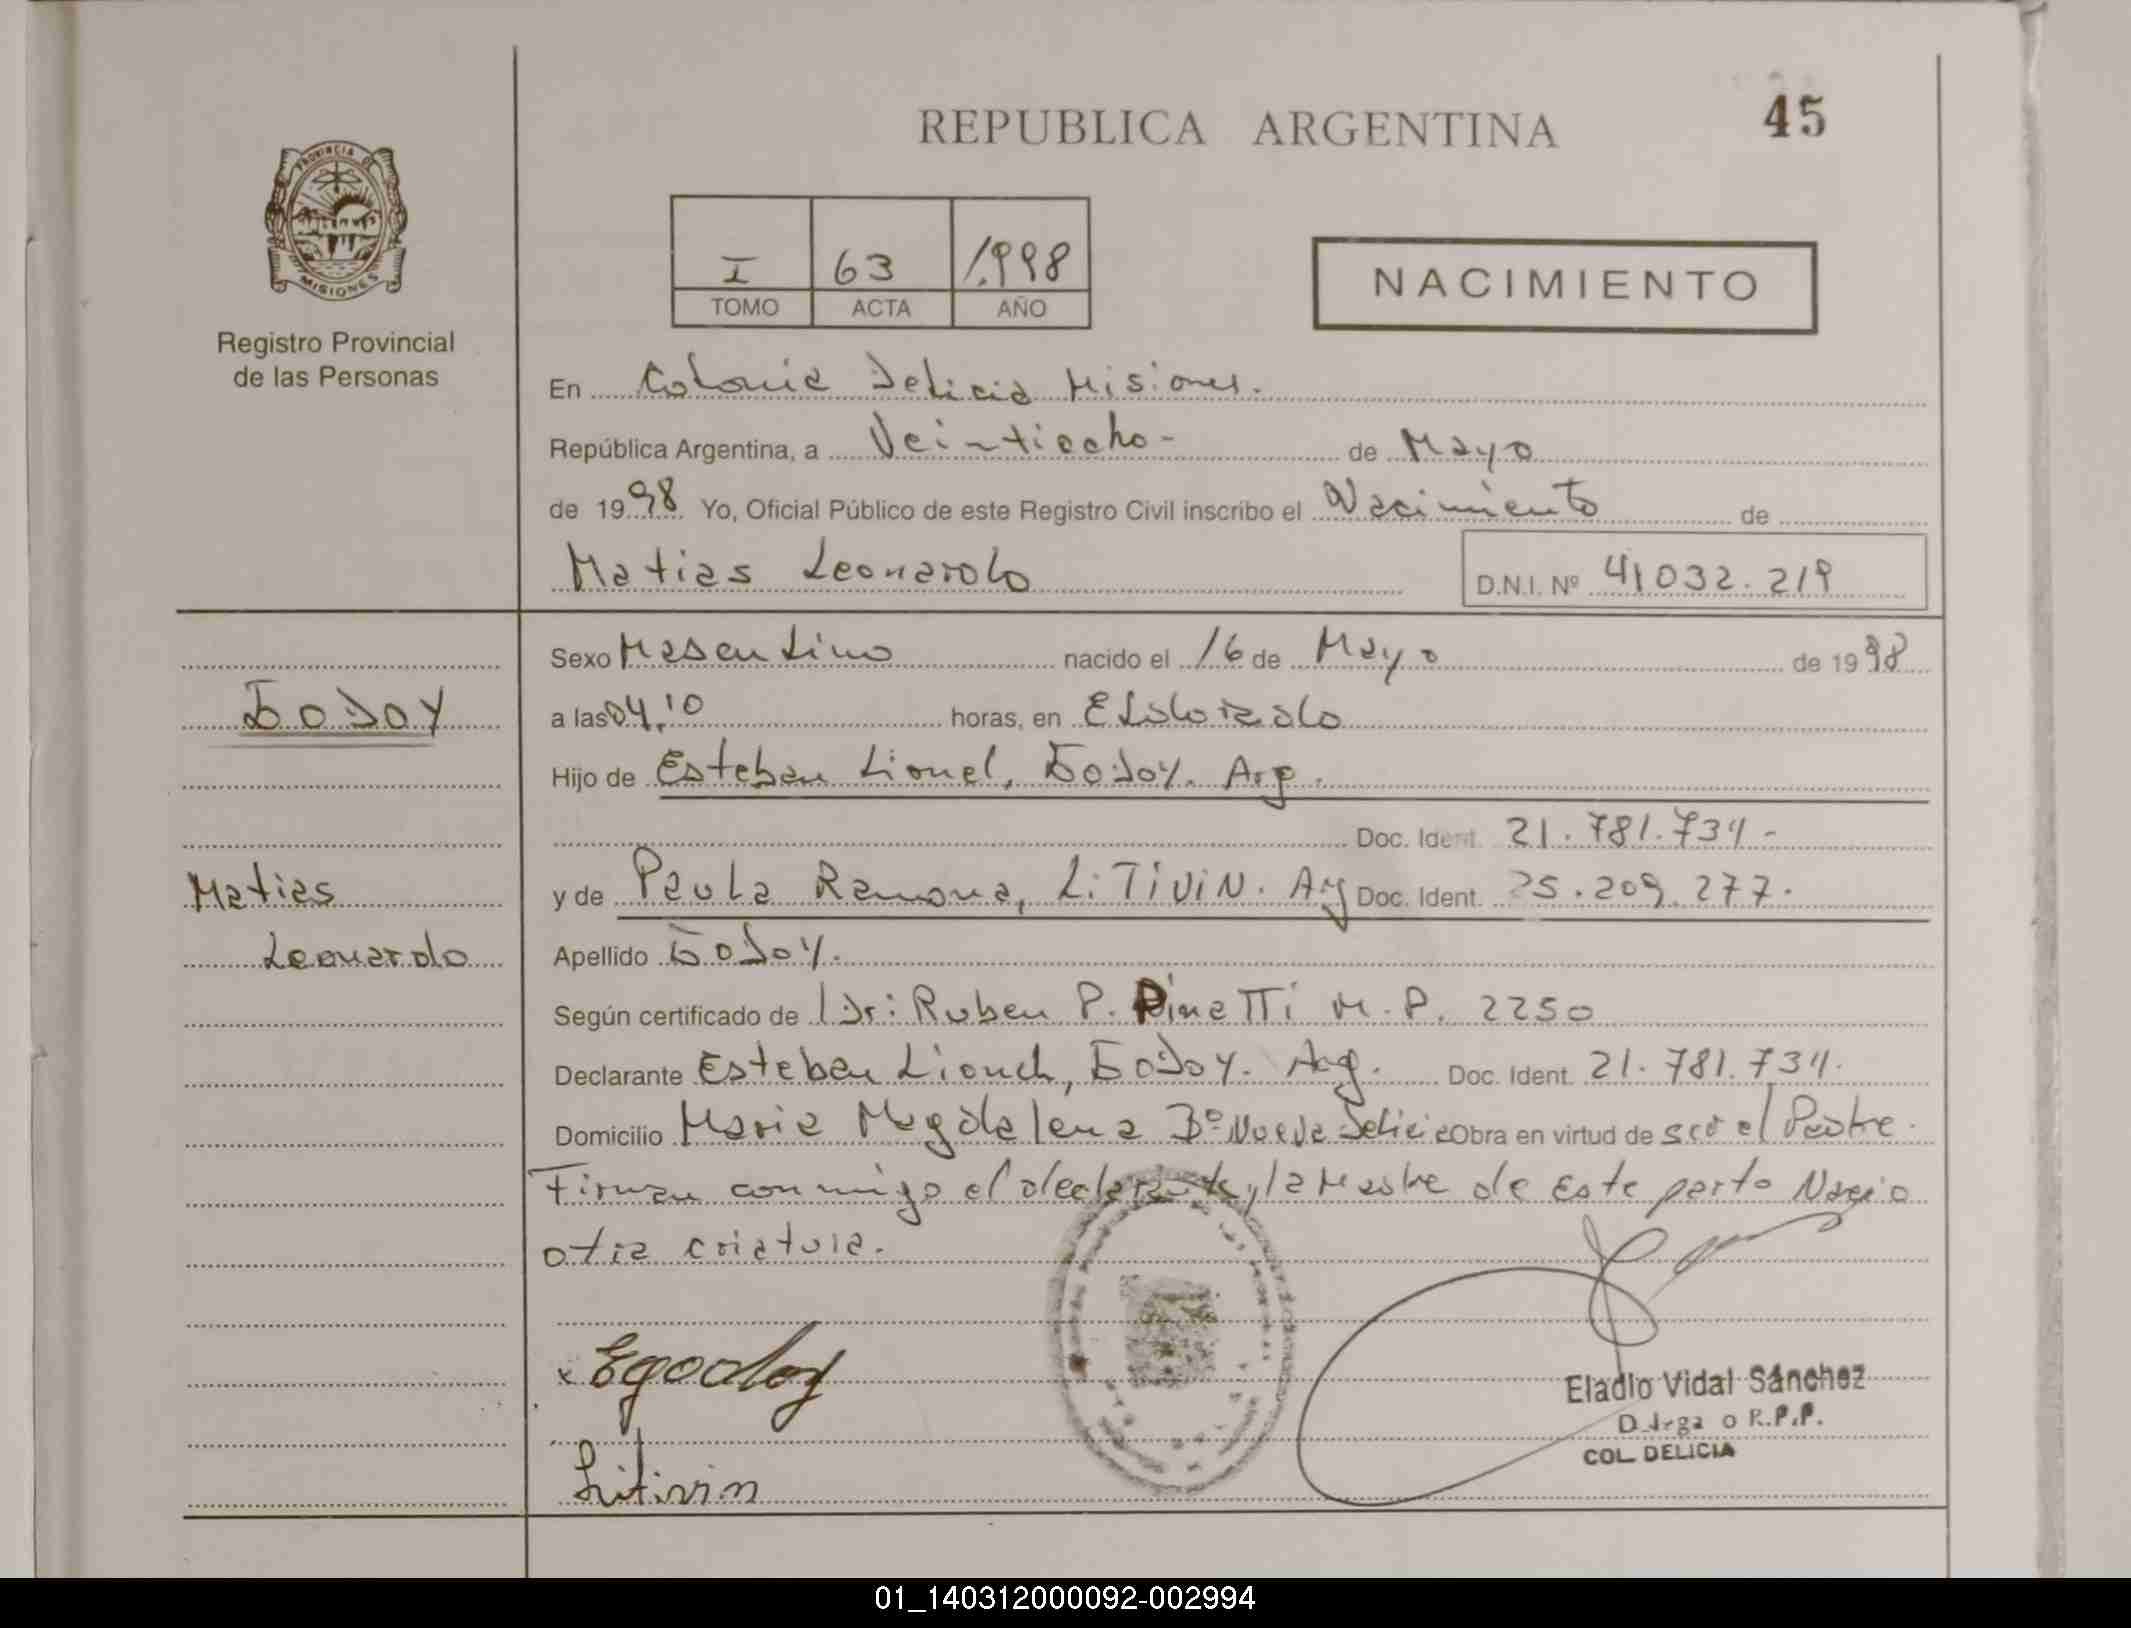 REPUBLICA ARGENTINA
45
PROVINCIA DE
MISIONES
Registro Provincial
de las Personas
I 63 1.998
TOMO ACTA AÑO
NACIMIENTO
En Colonia Delicia Misiones.
República Argentina, a Veintiocho - de Mayo
de 1998 Yo, Oficial Público de este Registro Civil inscribo el Nacimiento de
Matias Leonardo D.N.I. Nº 41032.219
Godoy
Matias
Leonardo
Sexo Masculino nacido el 16 de Mayo de 1998
a las 04,10 horas, en Eldorado
Hijo de Esteban Lionel, Godoy. Arg.
Doc. Ident. 21.781.734 -
y de Paula Ramona, LiTiViN. Arg Doc. Ident. 25.209.277.
Apellido Godoy.
Según certificado de Dr: Ruben P. PineTTi M.P. 2250
Declarante Esteban Lionel, Godoy. Arg. Doc. Ident. 21.781.734.
Domicilio Maria Magdalena Bº Nueva Delicia Obra en virtud de ser el Padre.
Firman conmigo el declarante y la Madre de este parto Nacio
otra criatura.
x Egodoy
Litivin
Eladio Vidal Sánchez
Delegado R.P.P.
COL. DELICIA
01_140312000092-002994